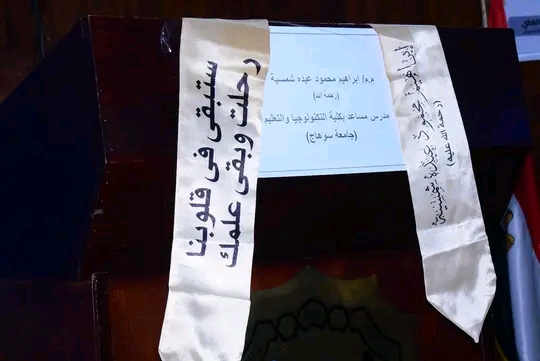 م.م/ ابراهيم محمود عبده شمسية
(رحمة الله)
مدرس مساعد بكلية التكنولوجيا والتعليم
(جامعة سوهاج)
رحلت وبقى علمك
ستبقى فى قلوبنا
إبراهيم محمود عبده شمسية
(رحمة الله عليه)